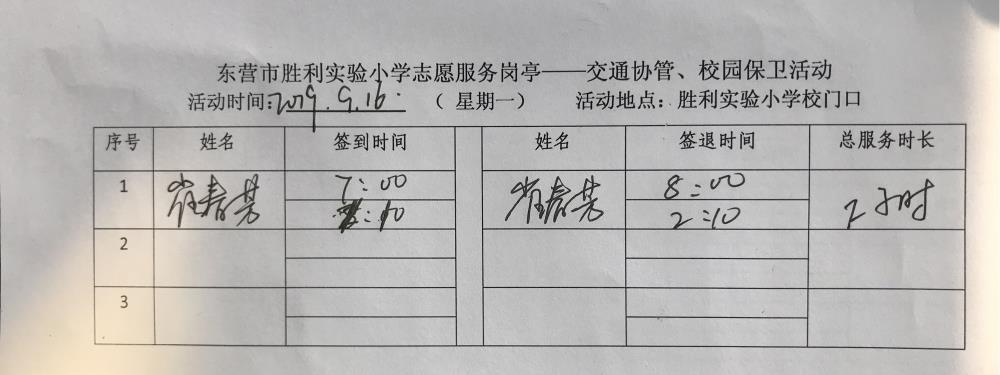 东营市胜利实验小学志愿服务岗亭——交通协管、校园保卫活动
活动时间:2019.9.16. （ 星期一） 活动地点：胜利实验小学校门口
序号 姓名 签到时间 姓名 签退时间 总服务时长
1 崔春芳 7:00 崔春芳 8:00 2小时
:10 2:10
2
3